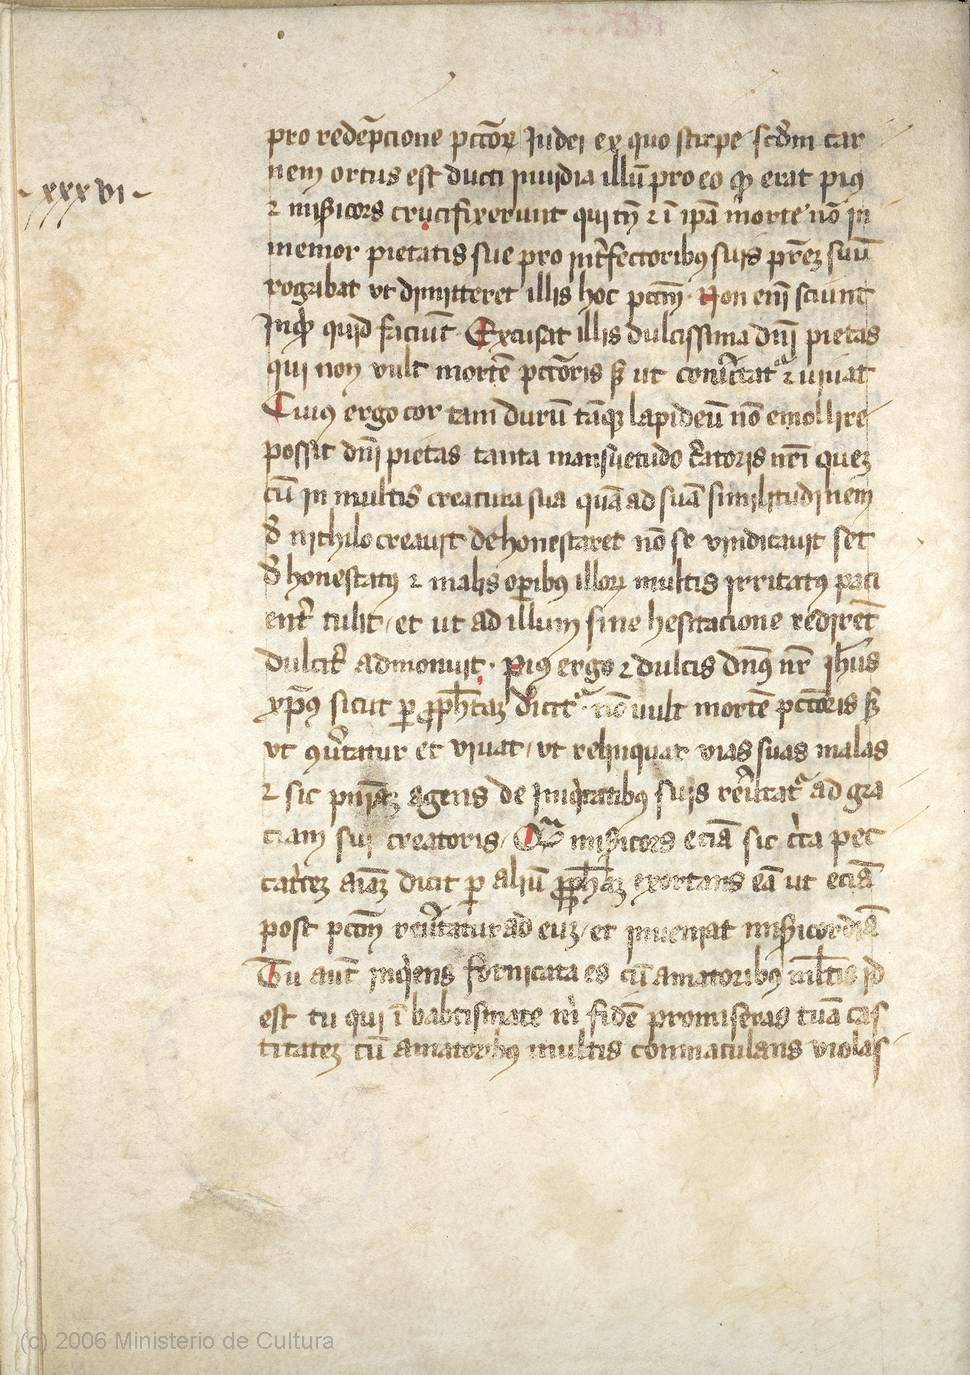 xxxvi
pro redēpcione pctōꝝ Judei ex quo stirpe scdm̄ car
nem ortus est ducti inuidia illū pro eo qꝫ erat piꝰ
⁊ miẜicors crucifixerunt qui tn̄ ⁊ ī ipā morte nō in
memor pietatis sue pro int̾fectoribꝰ suis prēꝫ suū
rogabat vt dimitteret illis hoc pctm̄. Non enī sciunt
Inqͥt quid faciūt. Excusat illis dulcissima dnī pietas
qui non vult mortē pctōris ꝫ ut conu̾tat᷑ ⁊ uiuat
Cuiꝰ ergo cor tam durū tāqꝫ lapideū nō emollire
possit dnī pietas tanta mansuetudo c̾atoris nrī queꝫ
cū in multis creatura sua quā ad suā similitudinem
ð nichilo creauit dehonestaret nō se vindicauit set
ð honestatꝰ ⁊ malis oꝑibꝰ illoꝝ multis irritatꝰ paci
ent̾ tulit / et ut ad illum sine hesitacione rediret
dulcit̾ admonuit. Piꝰ ergo ⁊ dulcis dnꝰ nr̄ ihūs
xp̄ꝰ sicut ꝑ ꝓph̄taꝫ dicit᷑. nō uult mortē pctōris ꝫ
vt ꝯu̾tatur et viuat / vt relinquat vias suas malas
⁊ sic agens de iniqͥtatibꝰ suis reu̾tat᷑ ad gra
ciam sui creatoris / miẜicors eciā sic cͥca pec
cat̾ceꝫ aīaꝫ dicit ꝑ aliū ꝓph̄aꝫ exortans eā ut eciā
post pctm̄ reu̾tatur ad euꝫ / et inueniat miẜicordiā
Tu aut̄ inqͥens fornicata es cū amatoribꝰ ml̄tis id
est tu qui ī babtismate mͥ fidē promiseras tuā cas
titateꝫ cū amatoribꝰ multis conmaculans violas
(c) 2006 Ministerio de Cultura